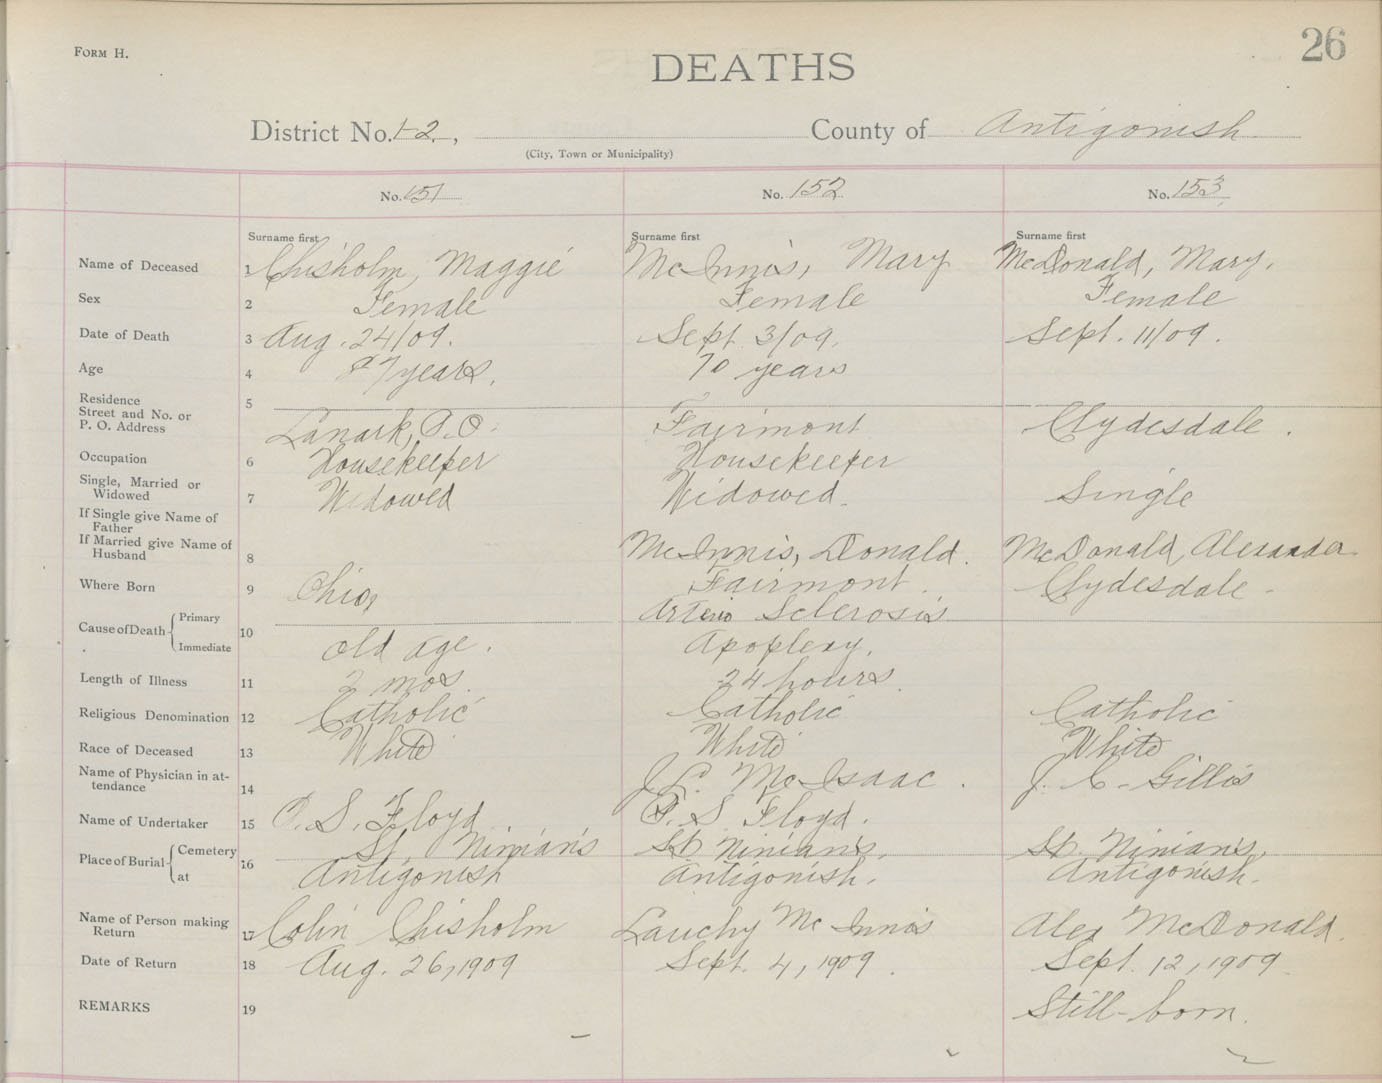 26
FORM H.
DEATHS
District No. 1-2, County of Antigonish
(City, Town or Municipality)
No. 151 No. 152 No. 153
Surname first Surname first Surname first
Name of Deceased 1 Chisholm, Maggie McInnis, Mary McDonald, Mary.
Sex 2 Female Female Female
Date of Death 3 Aug. 24/09. Sept 3/09. Sept. 11/09.
Age 4 87 years. 70 years
Residence 5
Street and No. or
P. O. Address Lanark, P.O. Fairmont Clydesdale.
Occupation 6 Housekeeper Housekeeper
Single, Married or
Widowed 7 Widowed Widowed. Single
If Single give Name of
Father
If Married give Name of
Husband 8 McInnis, Donald. McDonald, Alexander
Where Born 9 Ohio, Fairmont. Clydesdale.
Cause of Death Primary 10 Arterio Sclerosis
Immediate old age. Apoplexy.
Length of Illness 11 2 mos. 24 hours.
Religious Denomination 12 Catholic Catholic Catholic
Race of Deceased 13 White White White
Name of Physician in at-
tendance 14 McIsaac. J. C. Gillis
Name of Undertaker 15 Floyd S Floyd.
Place of Burial Cemetery 16 St. Ninian's St. Ninian's. St. Ninian's.
at Antigonish Antigonish. Antigonish.
Name of Person making
Return 17 Colin Chisholm Lauchy McInnis Alex McDonald.
Date of Return 18 Aug. 26, 1909 Sept. 4, 1909. Sept. 12, 1909.
REMARKS 19 Still-born.